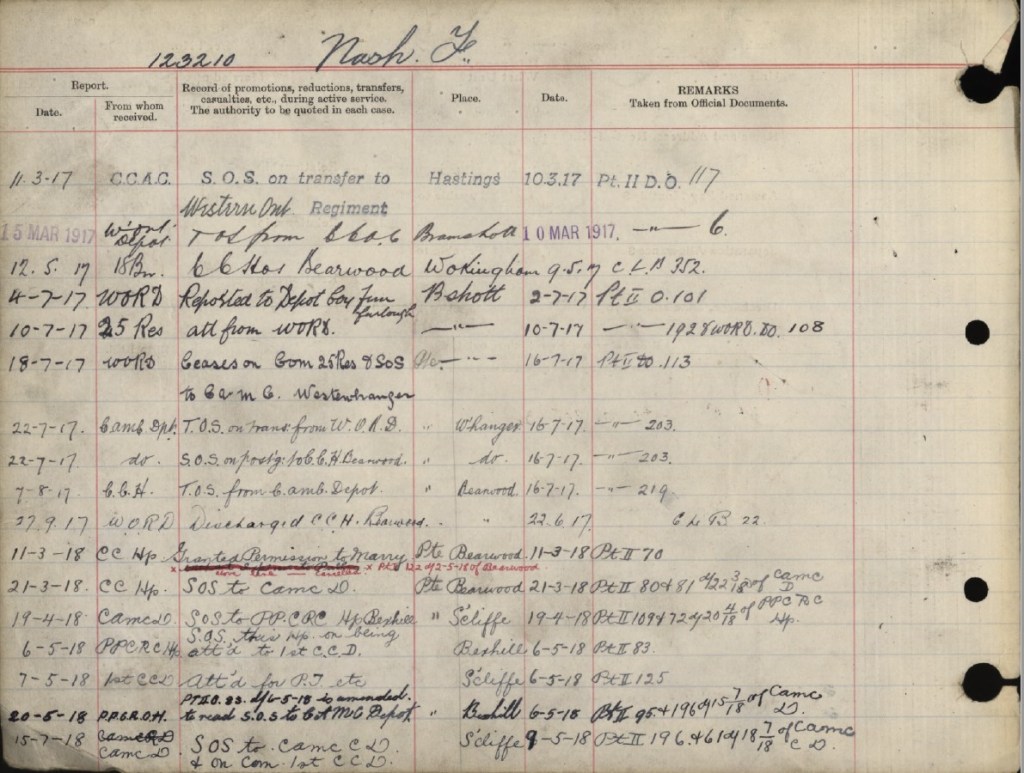 123210 Nash. F.
Report.
Date.
From whom received.
Record of promotions, reductions, transfers, casualties, etc., during active service. The authority to be quoted in each case.
Place.
Date.
REMARKS
Taken from Official Documents.
11.3-17 C.C.A.C. S.O.S. on transfer to Hastings 10.3.17 Pt. II D.O. 117
Western Ont Regiment
15 MAR 1917 W. Ont. Depot TOS from C.C.A.C Bramshott 10 MAR 1917. —"— 6.
12. 5. 17 18 Bn. CC Hos Bearwood Wokingham 9.5.17 C L B 352.
4-7-17 WORD Reported to Depot Coy from furlough Bshott 2-7-17 Pt II O.101
10-7-17 25 Res att from WORD. —"— 10-7-17 —"— 192 & WORD. DO. 108
18-7-17 WORD Ceases on Com 25 Res & SOS —"— 16-7-17 Pt II DO. 113
to CAMC. Westenhanger
22-7-17. CAMC Dpt. T.O.S. on trans: from W.O.R.D. " W'hanger 16-7-17. —"— 203.
22-7-17 do. S.O.S. on post'g: to C.C.H. Bearwood. " do. 16-7-17. —"— 203.
7-8-17. C.C.H. T.O.S. from CAMC. Depot. " Bearwood 16-7-17. —"— 219
27.9.17 W.O.R.D Discharged C C H. Bearwood. " 22.6.17 C L B. 22.
11-3-18 CC Hp. Granted Permission to Marry Pte Bearwood 11-3-18 Pt II 70
x x Pt II 122 d/2-5-18 of Bearwood
21-3-18 CC Hp. SOS to CAMC D. Pte Bearwood 21-3-18 Pt II 80 & 81 d/22 3/18 of CAMC D
19-4-18 CAMC D. SOS to PPCRC Hp Bexhill " S'cliffe 19-4-18 Pt II 109 & 72 d/20 4/18 of PPCRC Hp.
6-5-18 PPCRC Hp S.O.S. this Hp. on being att'd to 1st C.C.D. Bexhill 6-5-18 Pt II 83.
7-5-18 1st CCD Att'd for P.T etc S'cliffe 6-5-18 Pt II 125
20-5-18 P.P.C.R.C.H. PT II O. 83. d/6-5-18 is amended. to read S.O.S to CAMC Depot " Bexhill 6-5-18 Pt II 95 & 196 d/15 7/18 of CAMC D.
15-7-18 CAMC D. SOS to CAMC C D. S'cliffe 9-5-18 Pt II 196 & 61 d/18 7/18 of CAMC C D.
& on Com. 1st C C D.